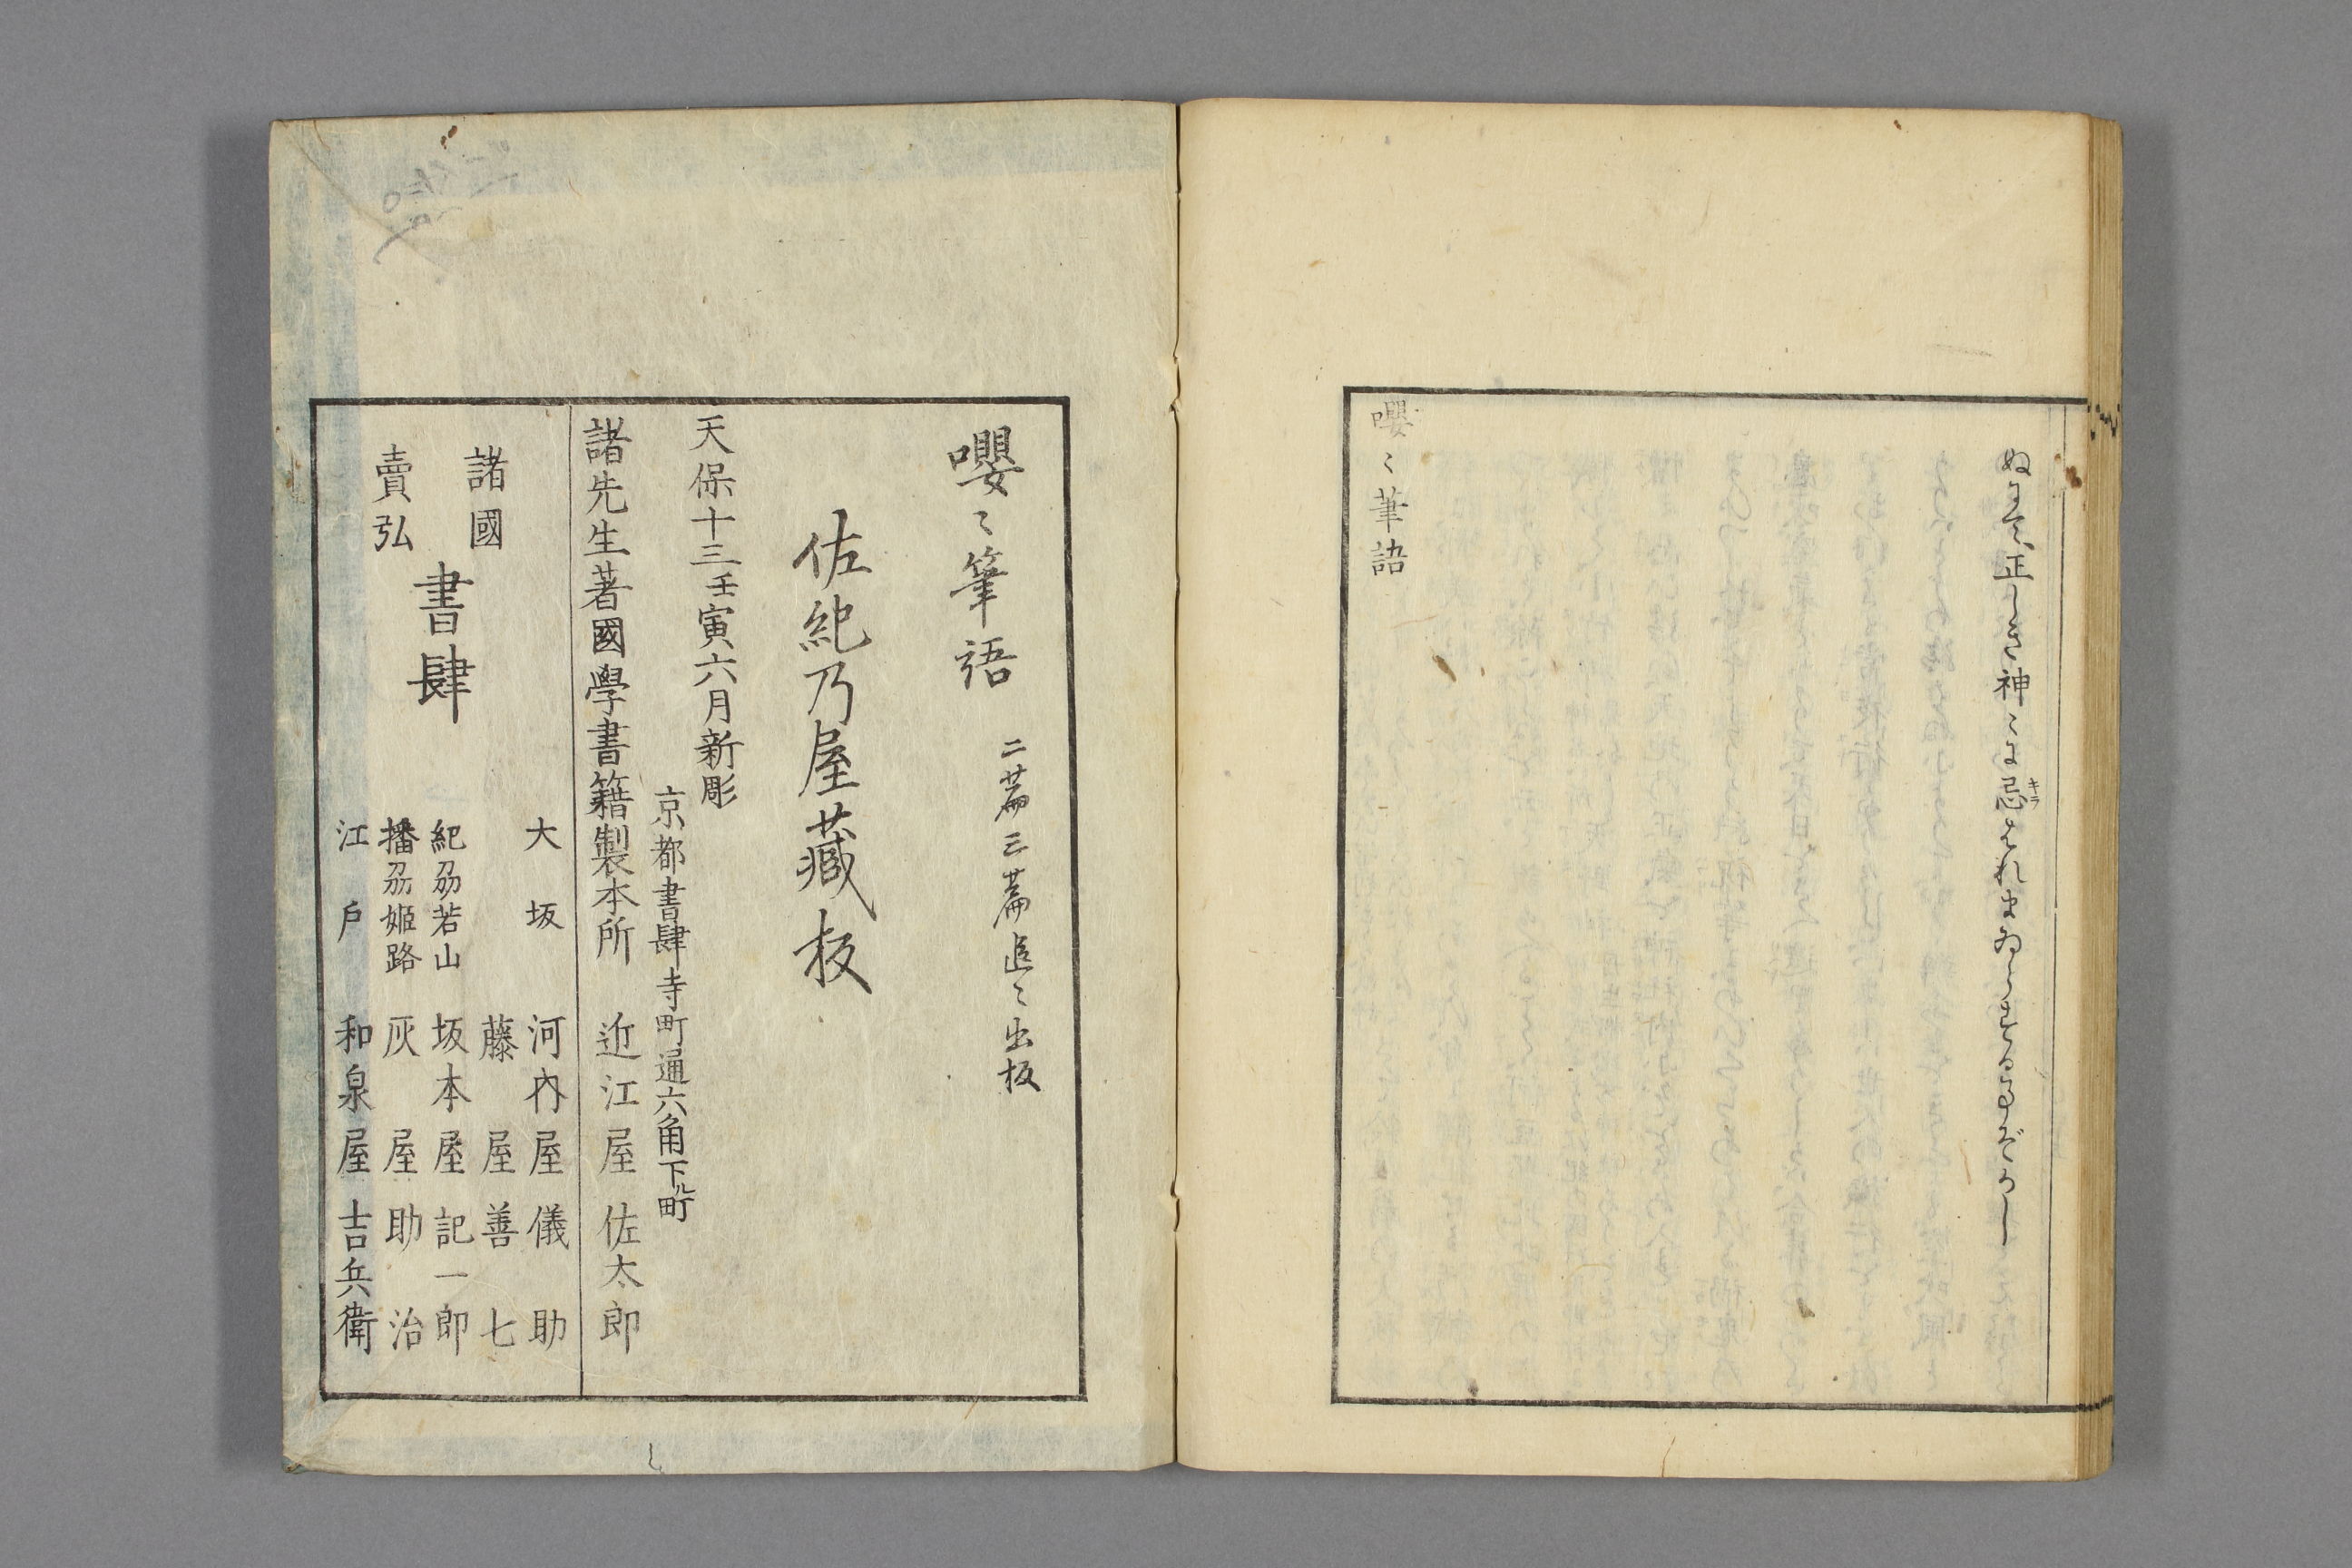 ぬまで、正しき神〻に忌はれまゐらする事ぞかし
キラ
嚶〻筆語
嚶〻筆語
二篇三篇追〻出板
佐紀乃屋藏板
天保十三壬寅六月新彫
京都書肆寺町通六角下ル町
諸先生著國學書籍製本所 近江屋佐太郎
諸國
賣弘
書肆
大坂 河内屋儀助
藤屋善七
紀刕若山 坂本屋記一郎
播刕姫路 灰屋助治
江戸 和泉屋吉兵衛